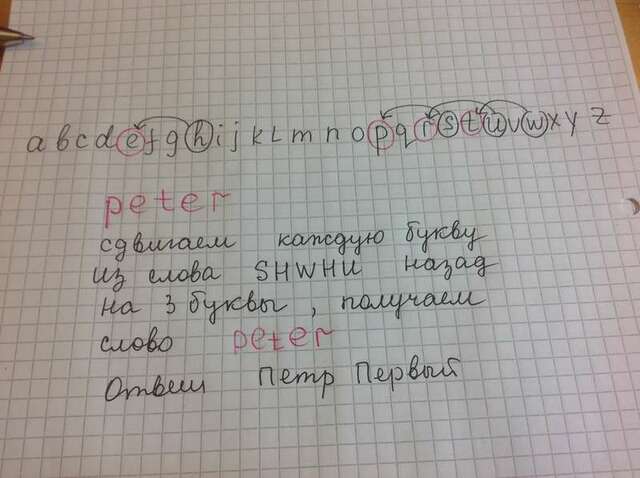 a b c d e f g h i j k L m n o p q r s t u v w x y z
peter
сдвигаем каждую букву
из слова SHWHU назад
на 3 буквы, получаем
слово peter
Ответ Петр Первый